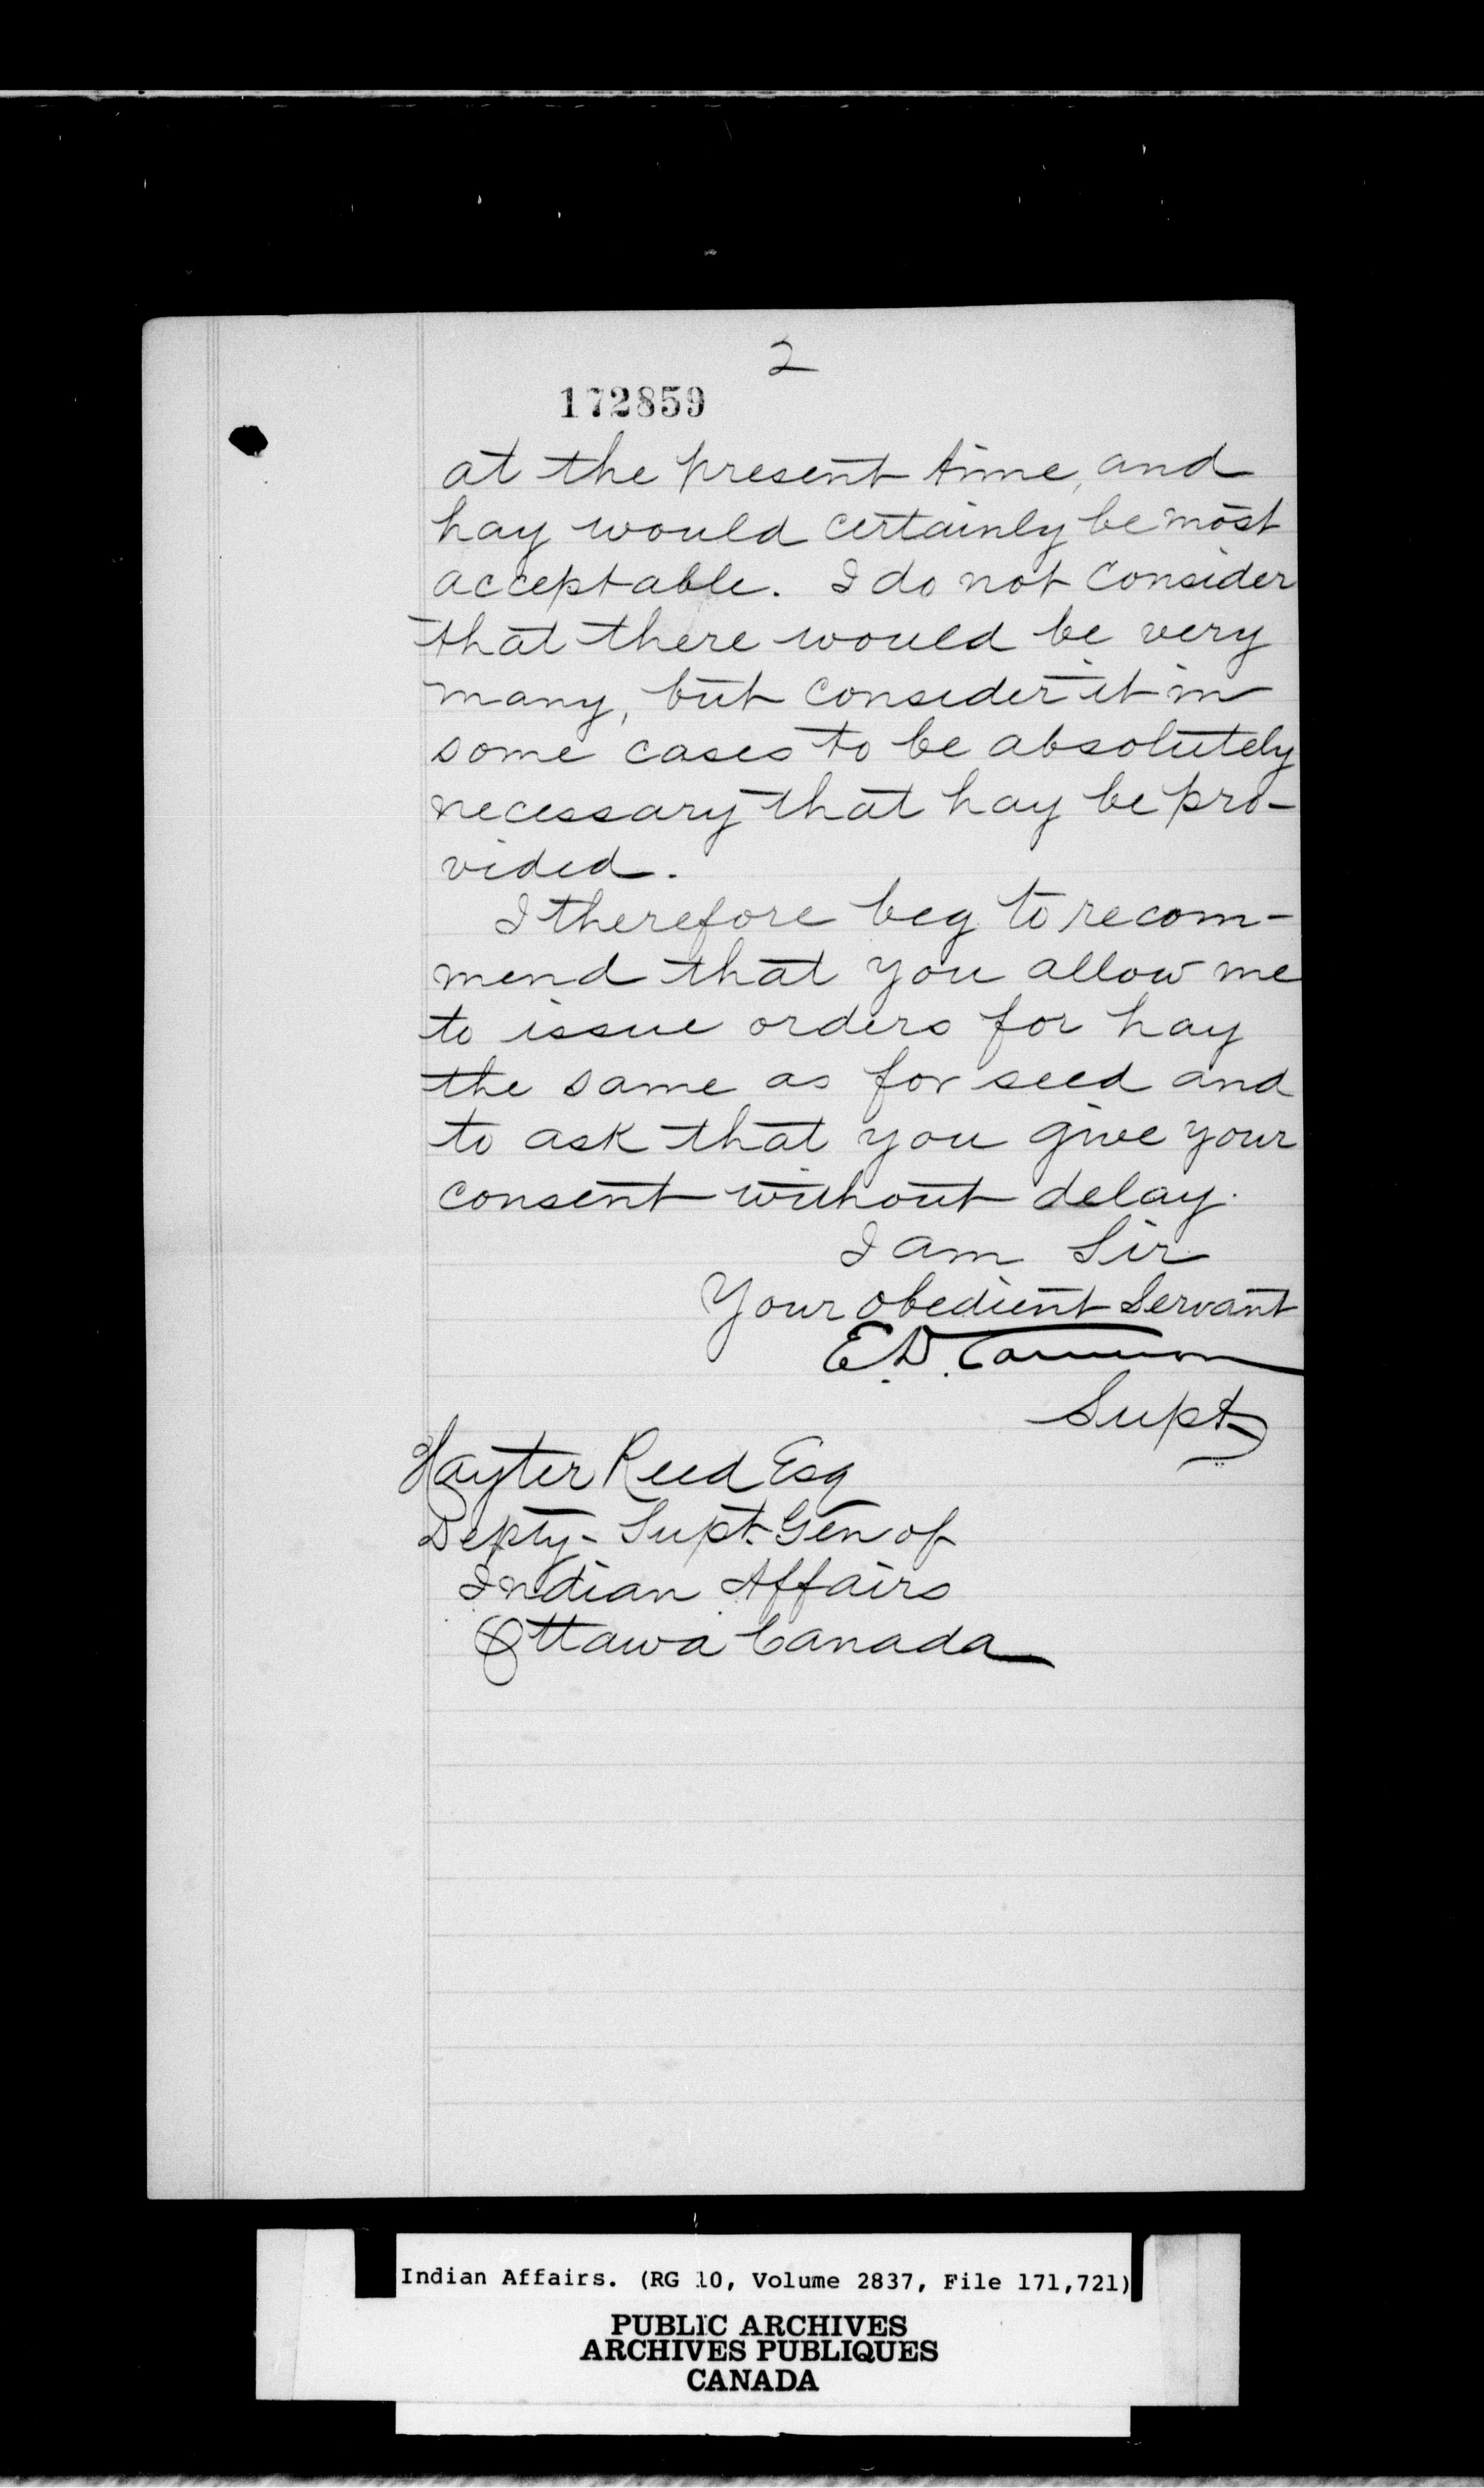 2
172859
at the present time, and
hay would certainly be most
acceptable. I do not consider
that there would be very
many, but consider it in
some cases to be absolutely
necessary that hay be pro-
vided.
I therefore beg to recom-
mend that you allow me
to issue orders for hay
the same as for seed and
to ask that you give your
consent without delay.
I am Sir
Your obedient Servant
E.D. Cameron
Supt
Hayter Reed Esq
Depty- Supt. Gen of
Indian Affairs
Ottawa Canada
Indian Affairs. (RG 10, Volume 2837, File 171,721)
PUBLIC ARCHIVES
ARCHIVES PUBLIQUES
CANADA